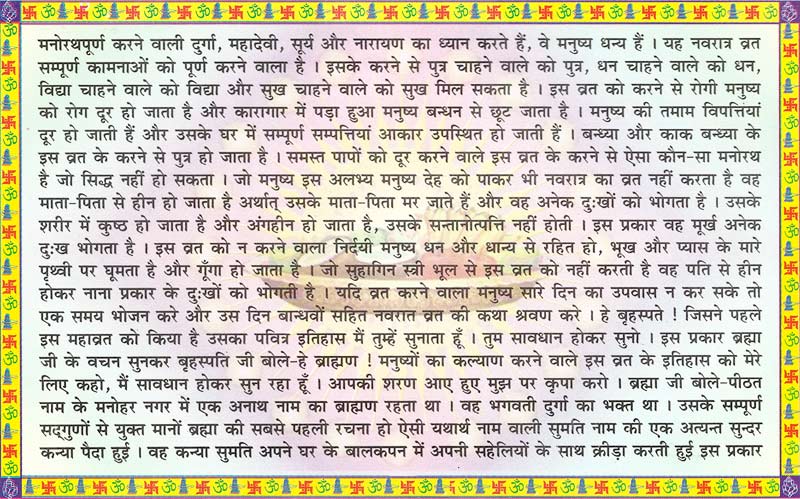 मनोरथपूर्ण करने वाली दुर्गा, महादेवी, सूर्य और नारायण का ध्यान करते हैं, वे मनुष्य धन्य हैं । यह नवरात्र व्रत
सम्पूर्ण कामनाओं को पूर्ण करने वाला है । इसके करने से पुत्र चाहने वाले को पुत्र, धन चाहने वाले को धन,
विद्या चाहने वाले को विद्या और सुख चाहने वाले को सुख मिल सकता है । इस व्रत को करने से रोगी मनुष्य
को रोग दूर हो जाता है और कारागार में पड़ा हुआ मनुष्य बन्धन से छूट जाता है । मनुष्य की तमाम विपत्तियां
दूर हो जाती हैं और उसके घर में सम्पूर्ण सम्पत्तियां आकार उपस्थित हो जाती हैं । बन्ध्या और काक बन्ध्या के
इस व्रत के करने से पुत्र हो जाता है । समस्त पापों को दूर करने वाले इस व्रत के करने से ऐसा कौन-सा मनोरथ
है जो सिद्ध नहीं हो सकता । जो मनुष्य इस अलभ्य मनुष्य देह को पाकर भी नवरात्र का व्रत नहीं करता है वह
माता-पिता से हीन हो जाता है अर्थात् उसके माता-पिता मर जाते हैं और वह अनेक दुःखों को भोगता है । उसके
शरीर में कुष्ठ हो जाता है और अंगहीन हो जाता है, उसके सन्तानोत्पत्ति नहीं होती । इस प्रकार वह मूर्ख अनेक
दुःख भोगता है । इस व्रत को न करने वाला निर्दयी मनुष्य धन और धान्य से रहित हो, भूख और प्यास के मारे
पृथ्वी पर घूमता है और गूँगा हो जाता है । जो सुहागिन स्त्री भूल से इस व्रत को नहीं करती है वह पति से हीन
होकर नाना प्रकार के दुःखों को भोगती है । यदि व्रत करने वाला मनुष्य सारे दिन का उपवास न कर सके तो
एक समय भोजन करे और उस दिन बान्धवों सहित नवरात व्रत की कथा श्रवण करे । हे बृहस्पते ! जिसने पहले
इस महाव्रत को किया है उसका पवित्र इतिहास मैं तुम्हें सुनाता हूँ । तुम सावधान होकर सुनो । इस प्रकार ब्रह्मा
जी के वचन सुनकर बृहस्पति जी बोले-हे ब्राह्मण ! मनुष्यों का कल्याण करने वाले इस व्रत के इतिहास को मेरे
लिए कहो, मैं सावधान होकर सुन रहा हूँ । आपकी शरण आए हुए मुझ पर कृपा करो । ब्रह्मा जी बोले-पीठत
नाम के मनोहर नगर में एक अनाथ नाम का ब्राह्मण रहता था । वह भगवती दुर्गा का भक्त था । उसके सम्पूर्ण
सद्गुणों से युक्त मानों ब्रह्मा की सबसे पहली रचना हो ऐसी यथार्थ नाम वाली सुमति नाम की एक अत्यन्त सुन्दर
कन्या पैदा हुई । वह कन्या सुमति अपने घर के बालकपन में अपनी सहेलियों के साथ क्रीड़ा करती हुई इस प्रकार